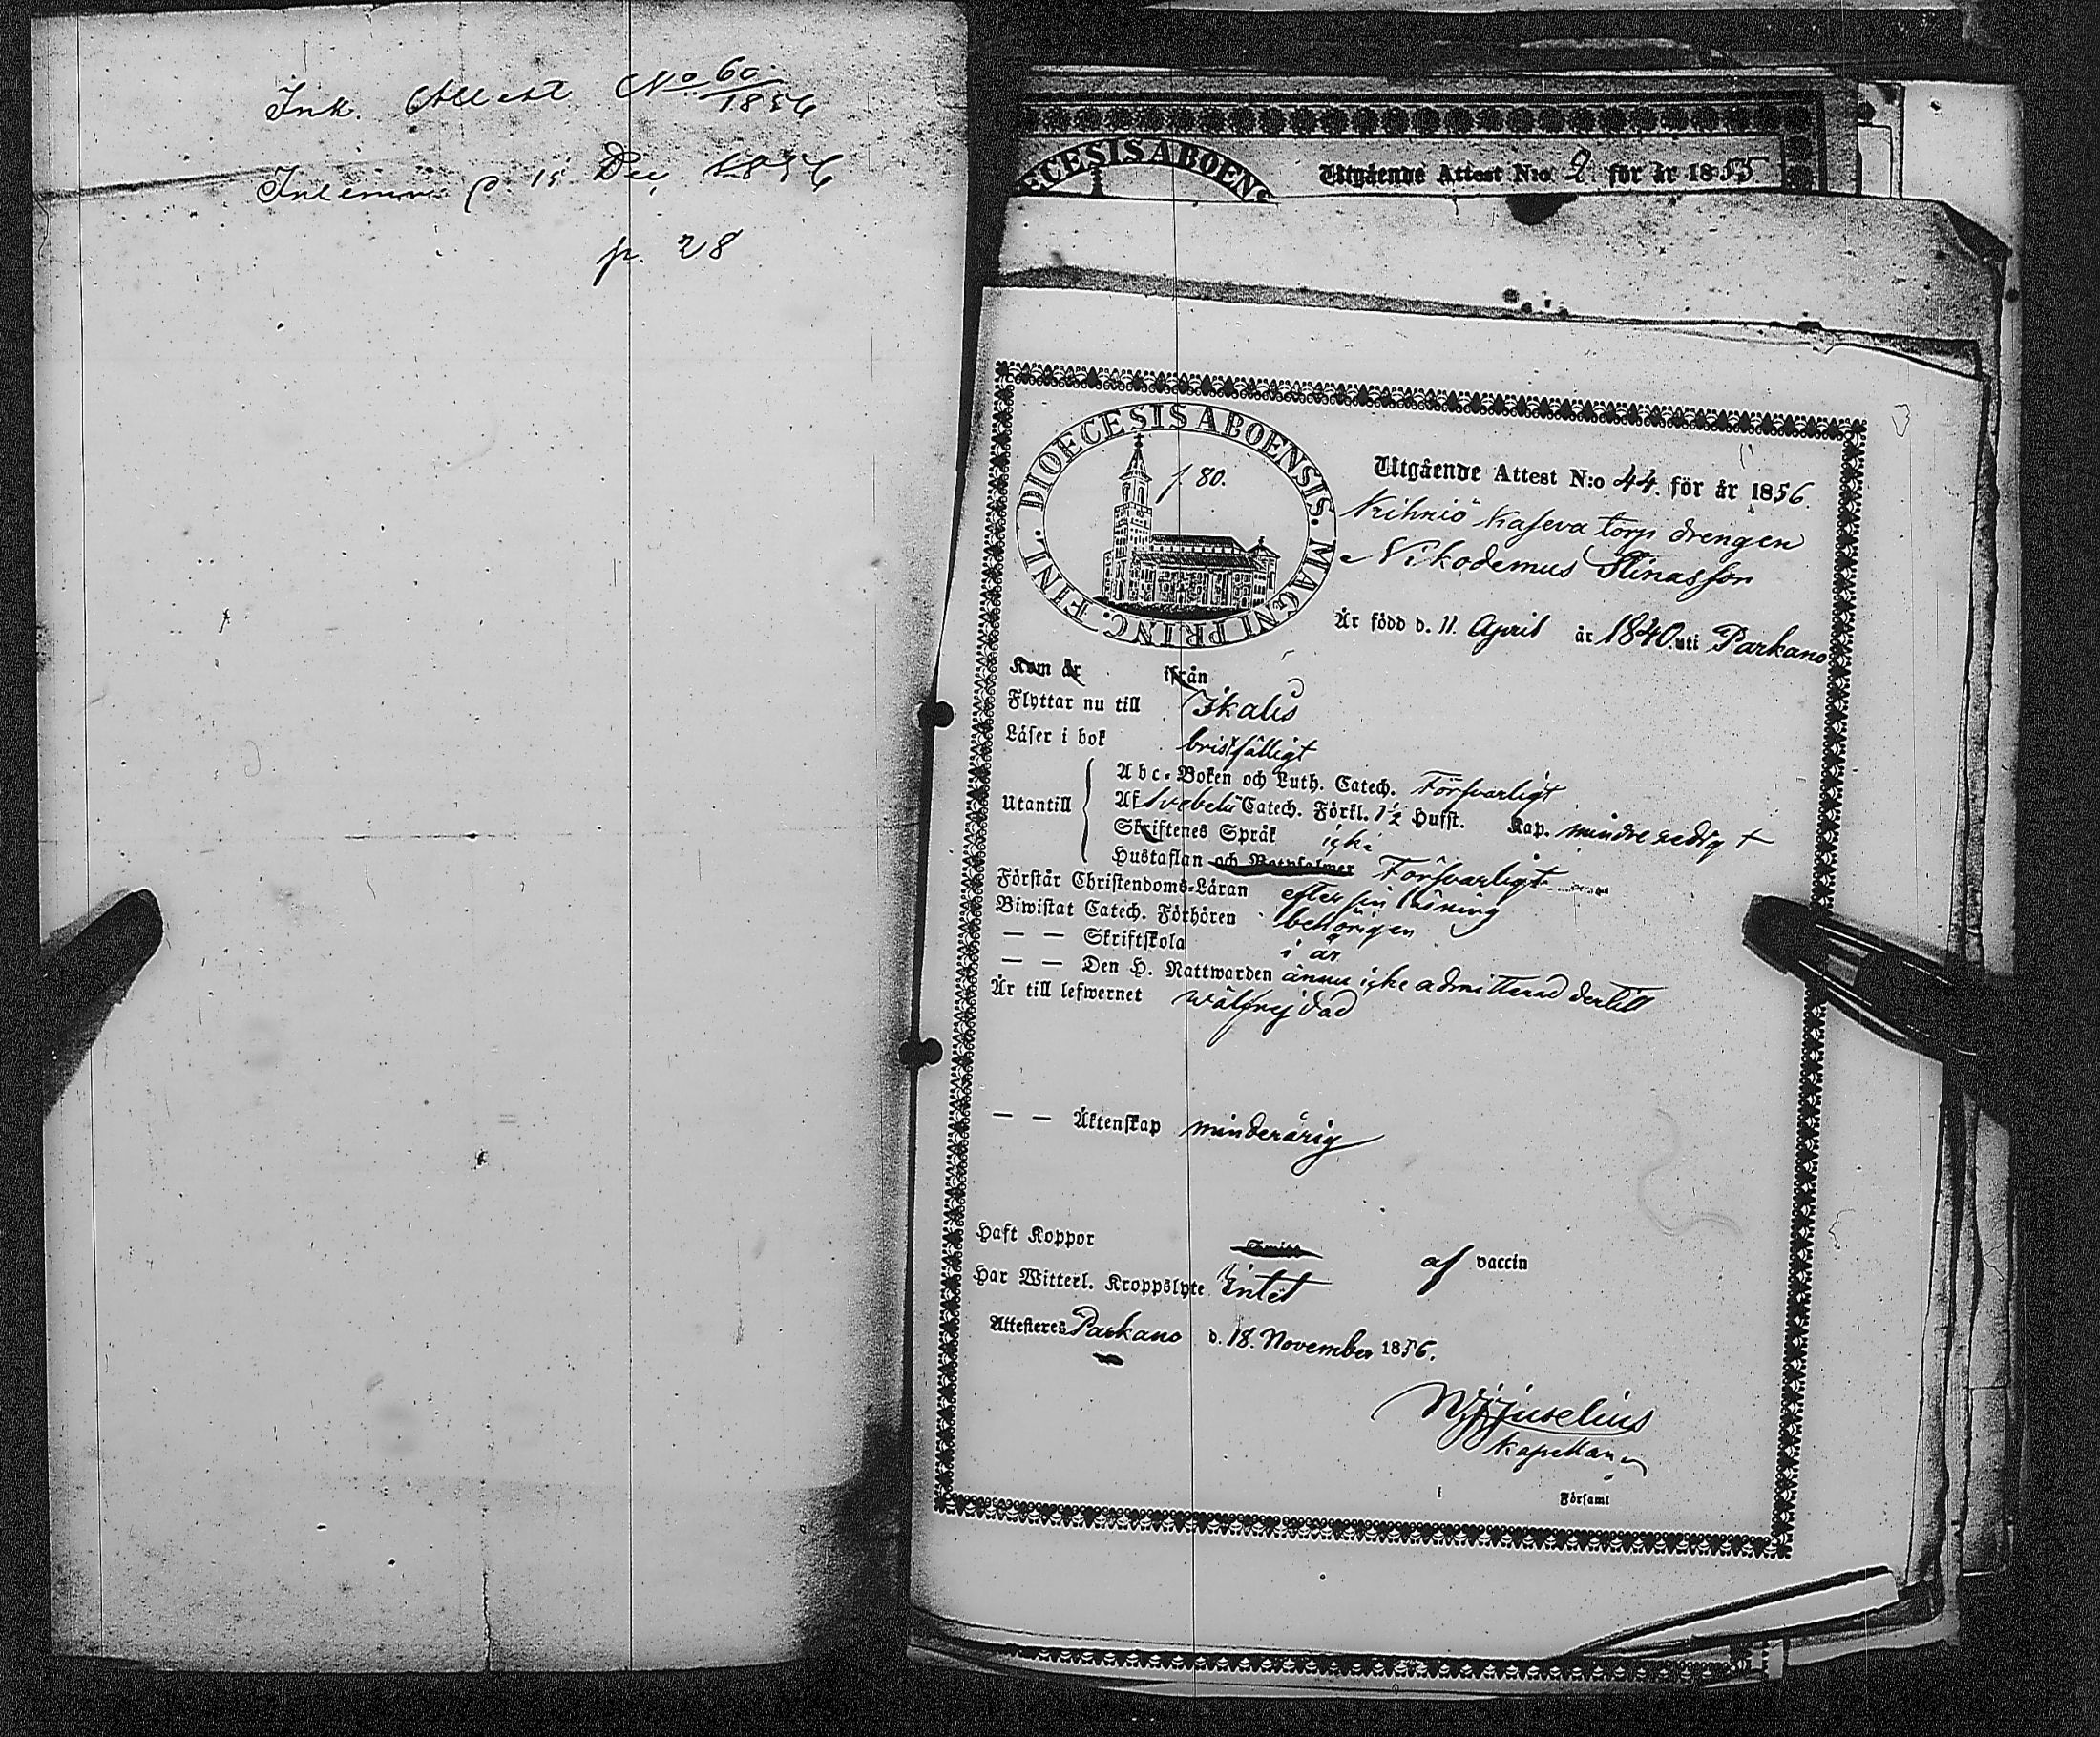 Ink. Attest No 60/1856
Inlemn. d 15 Dec. 1856
p. 28
Utgående Attest N:o 2 för år 1855
DIOECESIS ABOENSIS. MAGNI PRINC. FINL.
f. 80.
Utgående Attest N:o 44. för år 1856.
Kihniö Kaseva torp drengen
Nikodemus Stinasson
Är född d. 11. April år 1840. uti Parkano
Kom år ifrån
Flyttar nu till Ikalis
Läser i bok bristfälligt
Utantill
Abc-Boken och Luth. Catech. Försvarligt
Af Svebelii Catech. Förkl. 1½ Hufst. Kap. mindre redigt
Skriftenes Språk icke
Hustaflan och Botpsalmer Försvarligt
Förstår Christendoms-Läran efter sin läsning
Biwistat Catech. Förhören behörigen
— — Skriftskola i år
— — Den H. Nattwarden ännu icke admitterad dertill
Är till lefwernet wälfrejdad
— — Äktenskap minderårig
Haft Koppor af vaccin
Har Witterl. Kroppslyte Intet
Attesteres Parkano d. 18. November 1856.
Juselius
Kapellan
i Församl